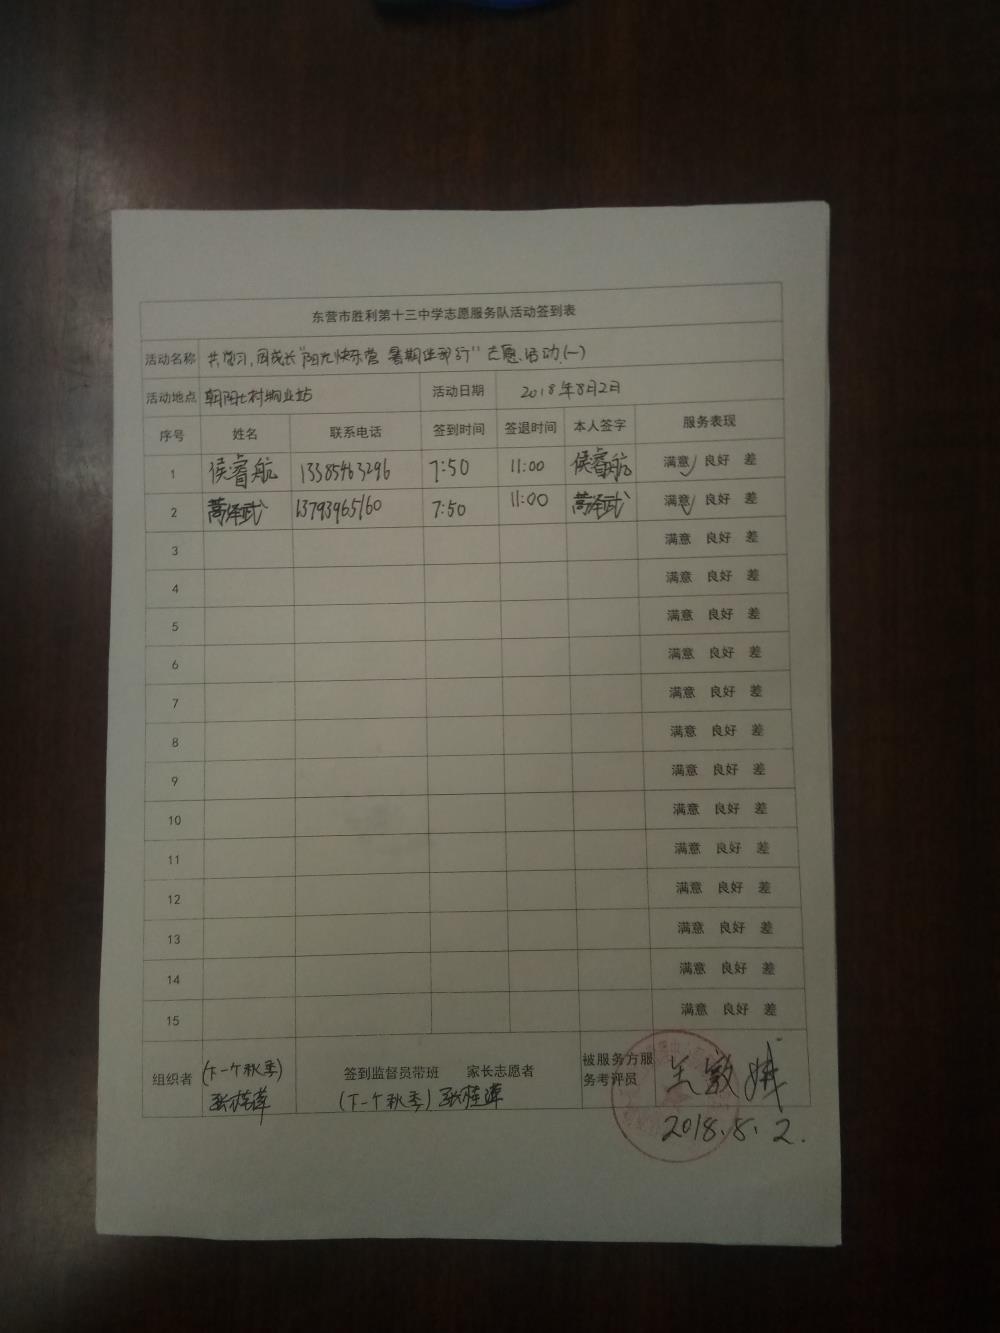 东营市胜利第十三中学志愿服务队活动签到表
活动名称 共学习,同成长"阳光快乐营 暑期 行"志愿活动(一)
活动地点 朝阳七村物业站 活动日期 2018年8月2日
序号 姓名 联系电话 签到时间 签退时间 本人签字 服务表现
1 侯睿航 13385463296 7:50 11:00 侯睿航 满意✓ 良好 差
2 泽武 13793965160 7:50 11:00 泽武 满意✓ 良好 差
3 满意 良好 差
4 满意 良好 差
5 满意 良好 差
6 满意 良好 差
7 满意 良好 差
8 满意 良好 差
9 满意 良好 差
10 满意 良好 差
11 满意 良好 差
12 满意 良好 差
13 满意 良好 差
14 满意 良好 差
15 满意 良好 差
组织者 (下一个秋季) 张桂萍
签到监督员带班 家长志愿者
(下一个秋季) 张桂萍
被服务方服
务考评员
王敏
2018.8.2.